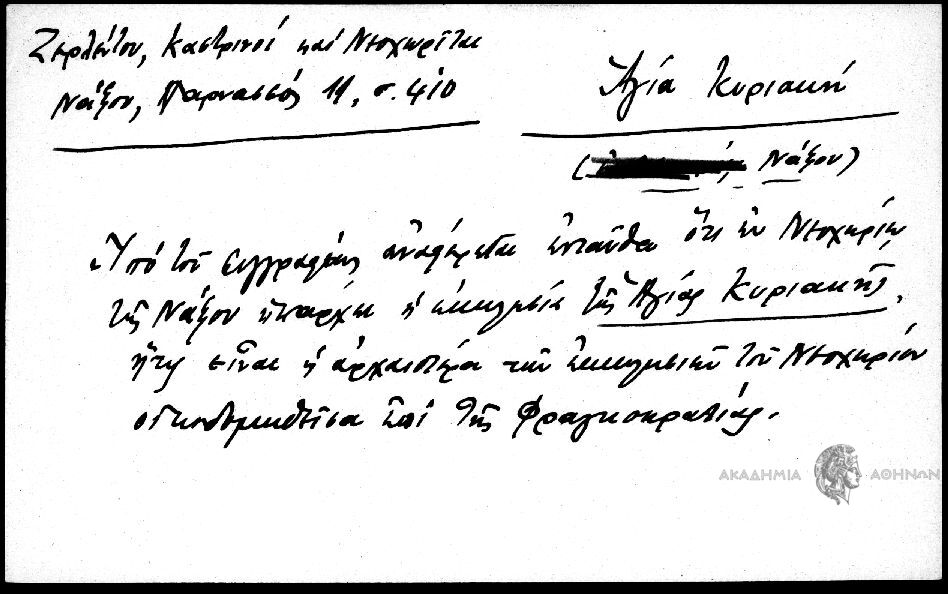 Ζερλέντου, Καστρινοί καί Νεοχωρῖται
Νάξου, Παρνασσός 11, σ. 410
Ἁγία Κυριακή
Νάξου)
Ὑπό τοῦ συγγραφέως ἀναφέρεται ἐνταῦθα ὅτι ἐν Νεοχωρίῳ
τῆς Νάξου ὑπάρχει ἡ ἐκκλησία τῆς Ἁγίας Κυριακῆς,
ἥτις εἶναι ἡ ἀρχαιοτέρα τῶν ἐκκλησιῶν τοῦ Νεοχωρίου
οἰκοδομηθεῖσα ἐπί τῆς Φραγκοκρατίας.
ΑΚΑΔΗΜΙΑ ΑΘΗΝΩΝ